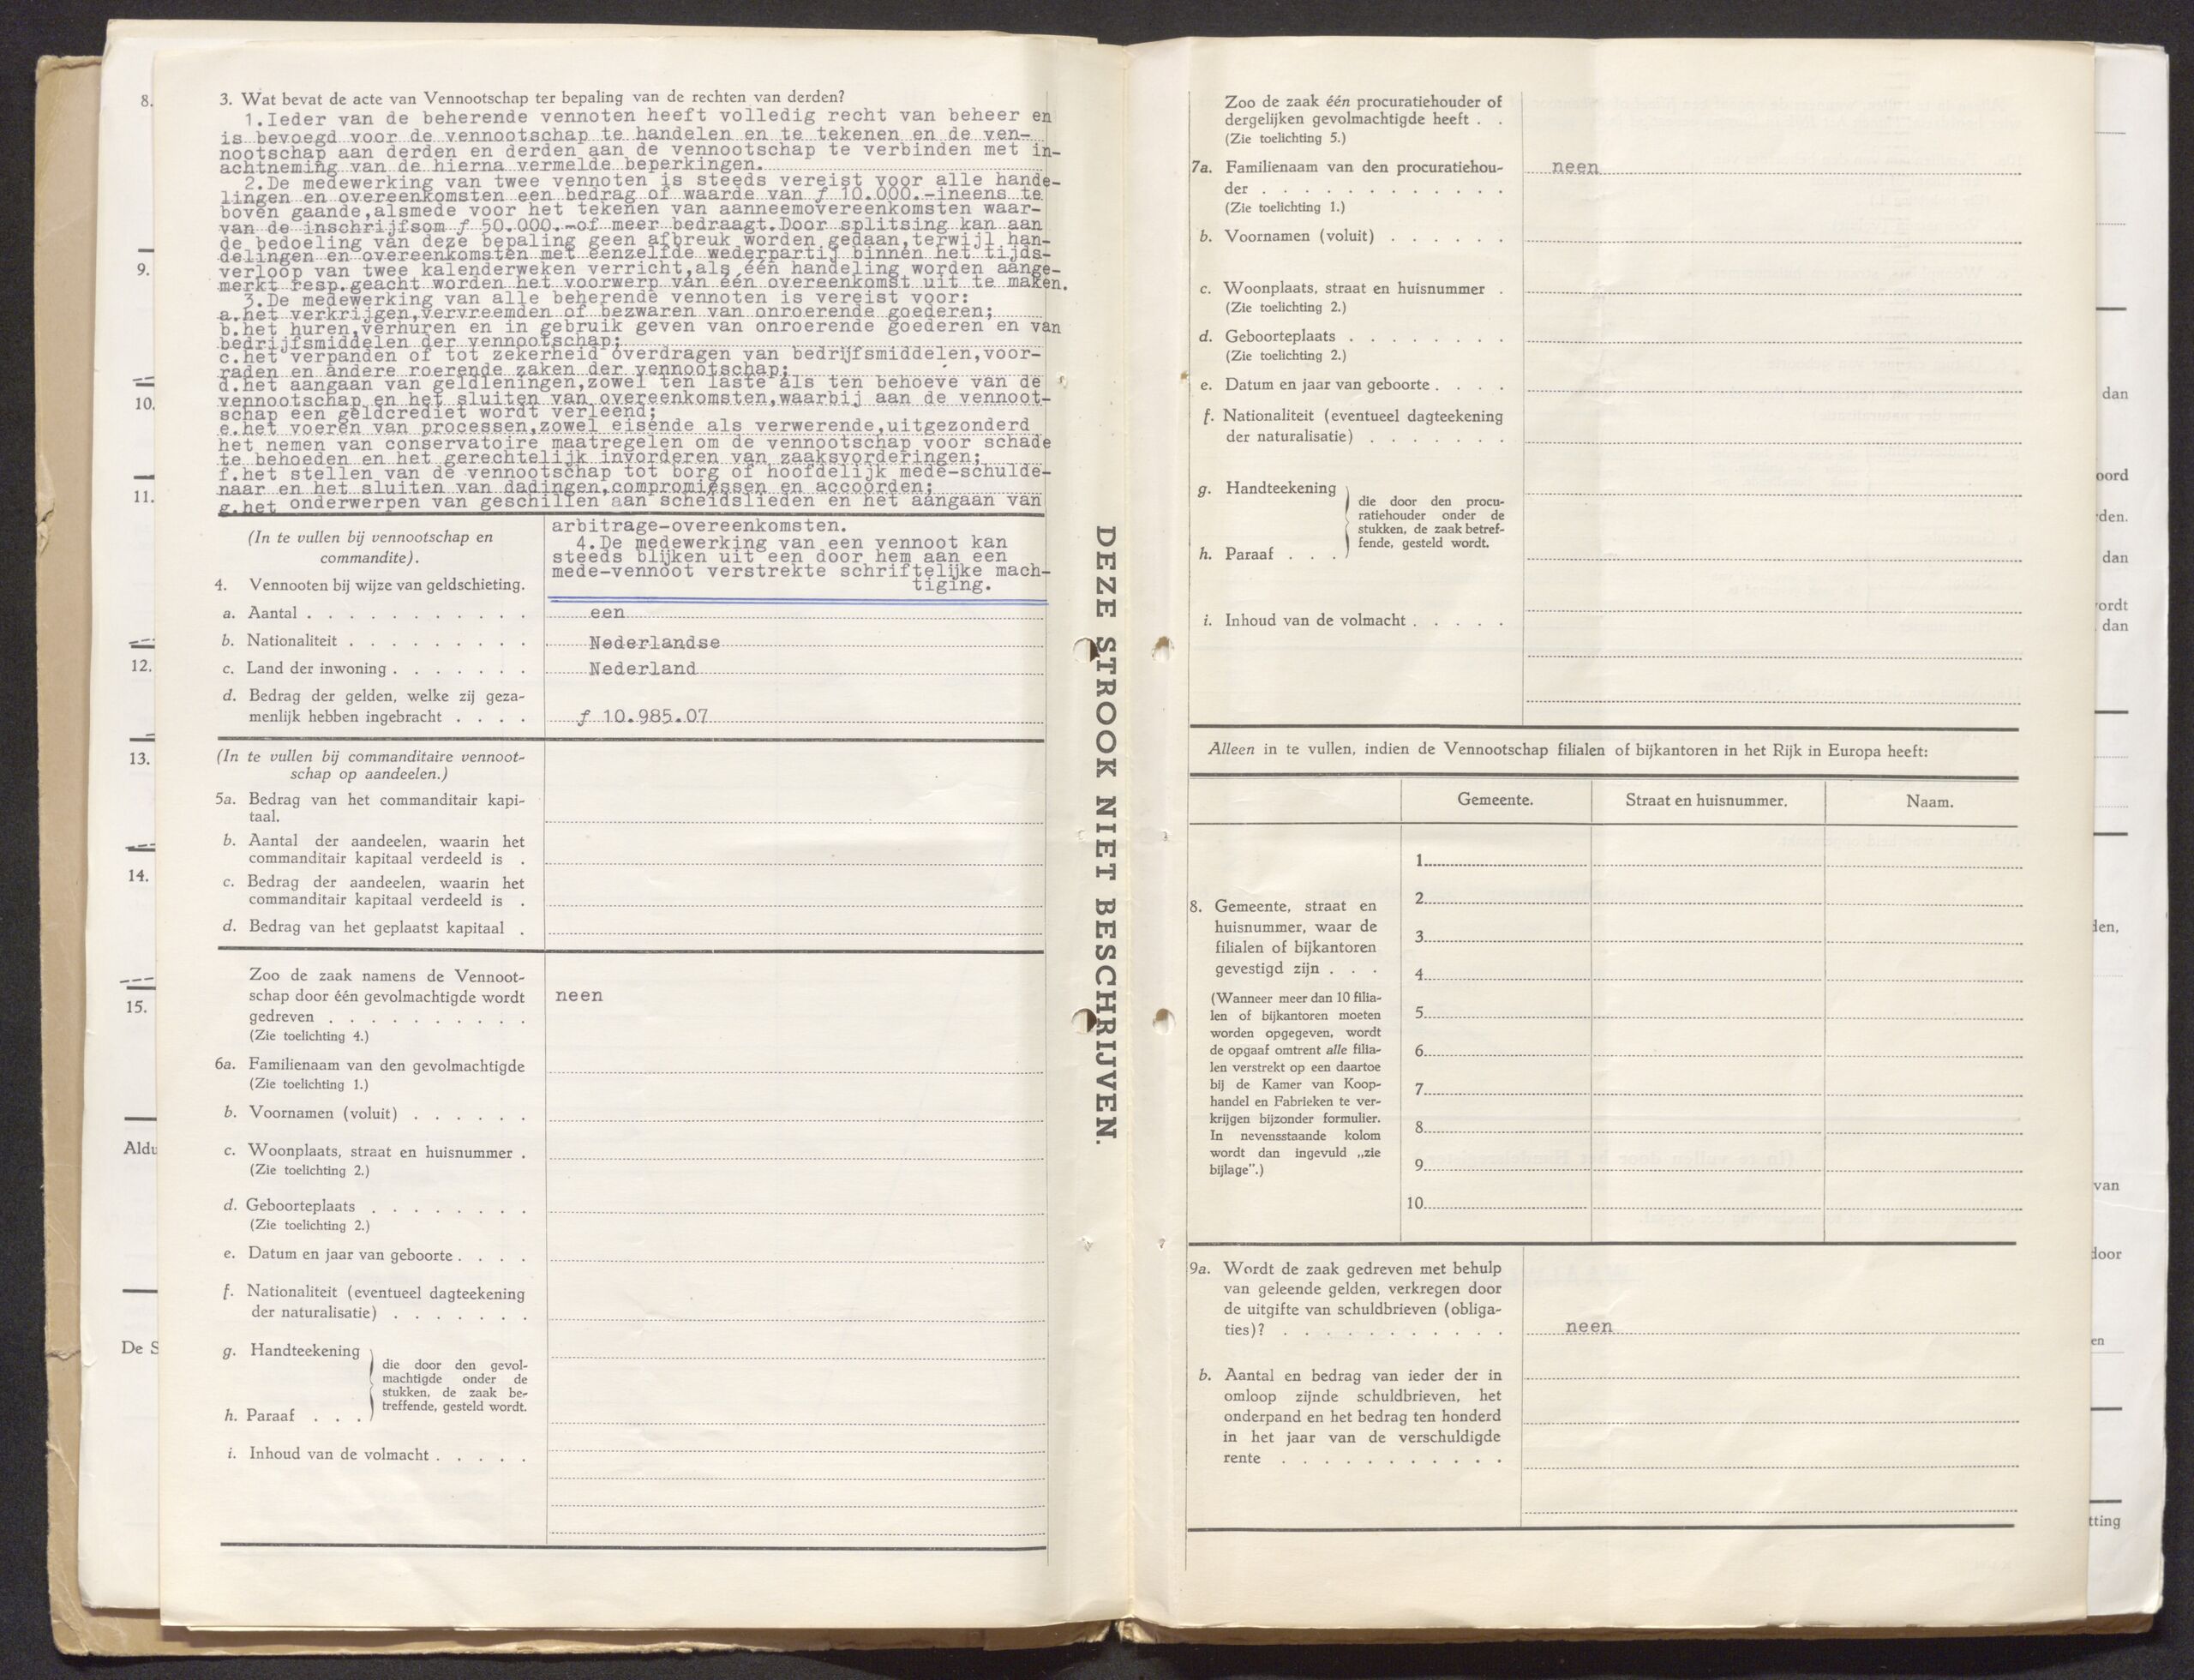 3. Wat bevat de acte van Vennootschap ter bepaling van de rechten van derden?
1.Ieder van de beherende vennoten heeft volledig recht van beheer en
is bevoegd voor de vennootschap te handelen en te tekenen en de ven-
nootschap aan derden en derden aan de vennootschap te verbinden met in-
achtneming van de hierna vermelde beperkingen.
2.De medewerking van twee vennoten is steeds vereist voor alle hande-
lingen en overeenkomsten een bedrag of waarde van ƒ 10.000.-ineens te
boven gaande,alsmede voor het tekenen van aanneemovereenkomsten waar-
van de inschrijfsom ƒ 50.000.-of meer bedraagt.Door splitsing kan aan
de bedoeling van deze bepaling geen afbreuk worden gedaan,terwijl han-
delingen en overeenkomsten met eenzelfde wederpartij binnen het tijds-
verloop van twee kalenderweken verricht,als één handeling worden aange-
merkt resp.geacht worden het voorwerp van één overeenkomst uit te maken.
3.De medewerking van alle beherende vennoten is vereist voor:
a.het verkrijgen,vervreemden of bezwaren van onroerende goederen;
b.het huren,verhuren en in gebruik geven van onroerende goederen en van
bedrijfsmiddelen der vennootschap;
c.het verpanden of tot zekerheid overdragen van bedrijfsmiddelen,voor-
raden en andere roerende zaken der vennootschap;
d.het aangaan van geldleningen,zowel ten laste als ten behoeve van de
vennootschap en het sluiten van overeenkomsten,waarbij aan de vennoot-
schap een geldcrediet wordt verleend;
e.het voeren van processen,zowel eisende als verwerende,uitgezonderd
het nemen van conservatoire maatregelen om de vennootschap voor schade
te behoeden en het gerechtelijk invorderen van zaaksvorderingen;
f.het stellen van de vennootschap tot borg of hoofdelijk mede-schulde-
naar en het sluiten van dadingen,compromiessen en accoorden;
g.het onderwerpen van geschillen aan scheidslieden en het aangaan van
arbitrage-overeenkomsten.
4.De medewerking van een vennoot kan
steeds blijken uit een door hem aan een
mede-vennoot verstrekte schriftelijke mach-
tiging.
(In te vullen bij vennootschap en
commandite).
4. Vennooten bij wijze van geldschieting.
a. Aantal . . . . . . . . . . . een
b. Nationaliteit . . . . . . . . . Nederlandse
c. Land der inwoning . . . . . . . Nederland
d. Bedrag der gelden, welke zij geza-
menlijk hebben ingebracht . . . . ƒ 10.985.07
(In te vullen bij commanditaire vennoot-
schap op aandeelen.)
5a. Bedrag van het commanditair kapi-
taal.
b. Aantal der aandeelen, waarin het
commanditair kapitaal verdeeld is .
c. Bedrag der aandeelen, waarin het
commanditair kapitaal verdeeld is .
d. Bedrag van het geplaatst kapitaal .
Zoo de zaak namens de Vennoot-
schap door één gevolmachtigde wordt neen
gedreven . . . . . . . . . .
(Zie toelichting 4.)
6a. Familienaam van den gevolmachtigde
(Zie toelichting 1.)
b. Voornamen (voluit) . . . . . .
c. Woonplaats, straat en huisnummer .
(Zie toelichting 2.)
d. Geboorteplaats . . . . . . . .
(Zie toelichting 2.)
e. Datum en jaar van geboorte . . . .
f. Nationaliteit (eventueel dagteekening
der naturalisatie) . . . . . . .
g. Handteekening
die door den gevol-
machtigde onder de
stukken, de zaak be-
treffende, gesteld wordt.
h. Paraaf . . .
i. Inhoud van de volmacht . . . . .
DEZE STROOK NIET BESCHRIJVEN.
Zoo de zaak één procuratiehouder of
dergelijken gevolmachtigde heeft . .
(Zie toelichting 5.)
7a. Familienaam van den procuratiehou- neen
der . . . . . . . . . . . .
(Zie toelichting 1.)
b. Voornamen (voluit) . . . . . .
c. Woonplaats, straat en huisnummer .
(Zie toelichting 2.)
d. Geboorteplaats . . . . . . . .
(Zie toelichting 2.)
e. Datum en jaar van geboorte . . . .
f. Nationaliteit (eventueel dagteekening
der naturalisatie) . . . . . . .
g. Handteekening
die door den procu-
ratiehouder onder de
stukken, de zaak betref-
fende, gesteld wordt.
h. Paraaf . . .
i. Inhoud van de volmacht . . . . .
Alleen in te vullen, indien de Vennootschap filialen of bijkantoren in het Rijk in Europa heeft:
Gemeente. Straat en huisnummer. Naam.
8. Gemeente, straat en
huisnummer, waar de
filialen of bijkantoren
gevestigd zijn . . .
(Wanneer meer dan 10 filia-
len of bijkantoren moeten
worden opgegeven, wordt
de opgaaf omtrent alle filia-
len verstrekt op een daartoe
bij de Kamer van Koop-
handel en Fabrieken te ver-
krijgen bijzonder formulier.
In nevensstaande kolom
wordt dan ingevuld „zie
bijlage”.)
1
2
3
4
5
6
7
8
9
10
9a. Wordt de zaak gedreven met behulp
van geleende gelden, verkregen door
de uitgifte van schuldbrieven (obliga-
ties)? . . . . . . . . . . . neen
b. Aantal en bedrag van ieder der in
omloop zijnde schuldbrieven, het
onderpand en het bedrag ten honderd
in het jaar van de verschuldigde
rente . . . . . . . . . . .
8.
9.
10.
11.
12.
13.
14.
15.
Aldu
De S
dan
oord
den.
dan
ordt
dan
len,
van
door
en
tting